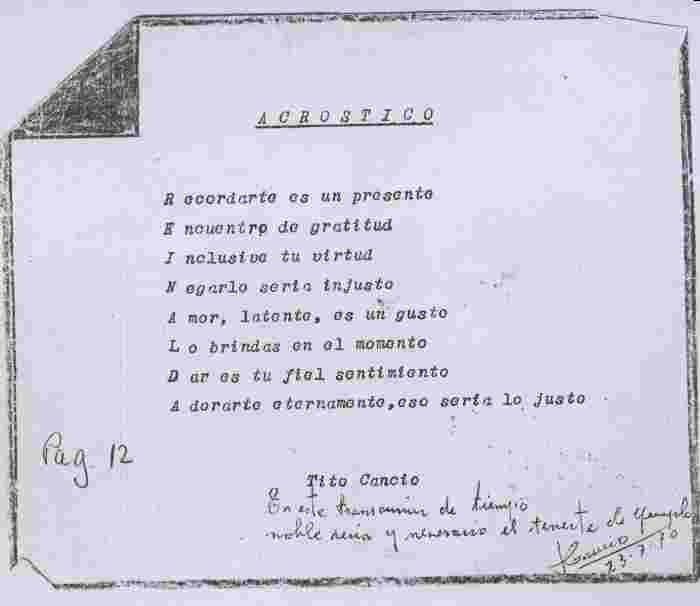 ACROSTICO
R ecordarte es un presente
E ncuentro de gratitud
I nclusive tu virtud
N egarlo seria injusto
A mor, latente, es un gusto
L o brindas en el momento
D ar es tu fiel sentimiento
A dorarte eternamente,eso seria lo justo
Pag. 12
Tito Cancio
En este transcurrir de tiempo
noble seria y necesario el tenerte de ejemplo
Cancio
23.7.70